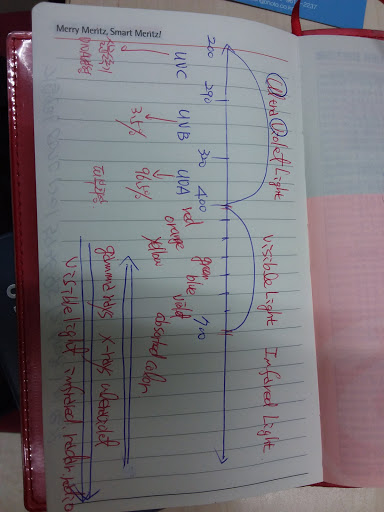 Merry Meritz, Smart Meritz!
Ultra Violet Light
Visible Light
Infared Light
200
290
400
700
UVC
UVB
UVA
3.5%
96.5%
red
orange
yellow
green
blue
violet
absorbed color
gamma rays x-ray ultraviolet
visible light infrared radar radio